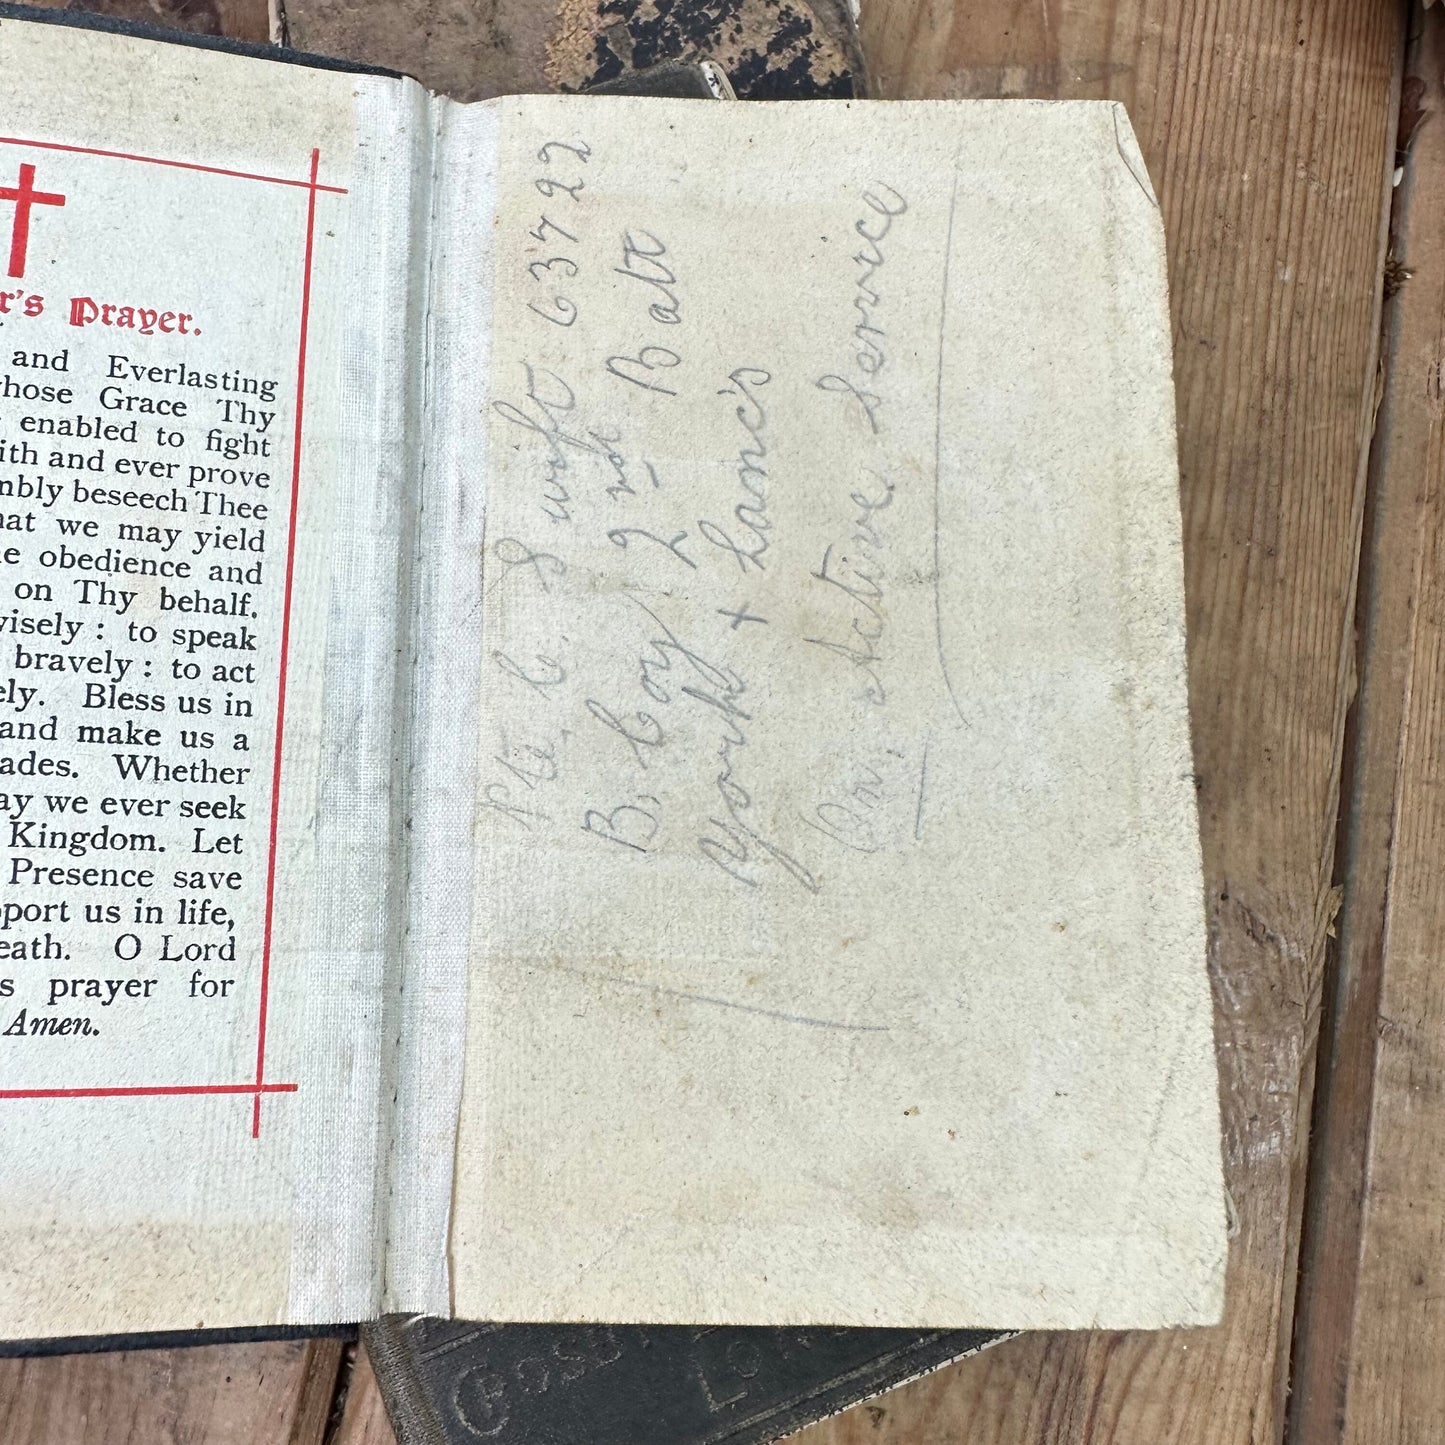 r's Prayer.
and Everlasting
whose Grace Thy
enabled to fight
ith and ever prove
mbly beseech Thee
hat we may yield
e obedience and
on Thy behalf.
wisely : to speak
bravely : to act
ely. Bless us in
and make us a
ades. Whether
ay we ever seek
Kingdom. Let
Presence save
pport us in life,
eath. O Lord
s prayer for
Amen.
Pte C. Swift 63722
B. Coy 2nd Batt
York + Lanc's
On, Active Service
GOSP
LO